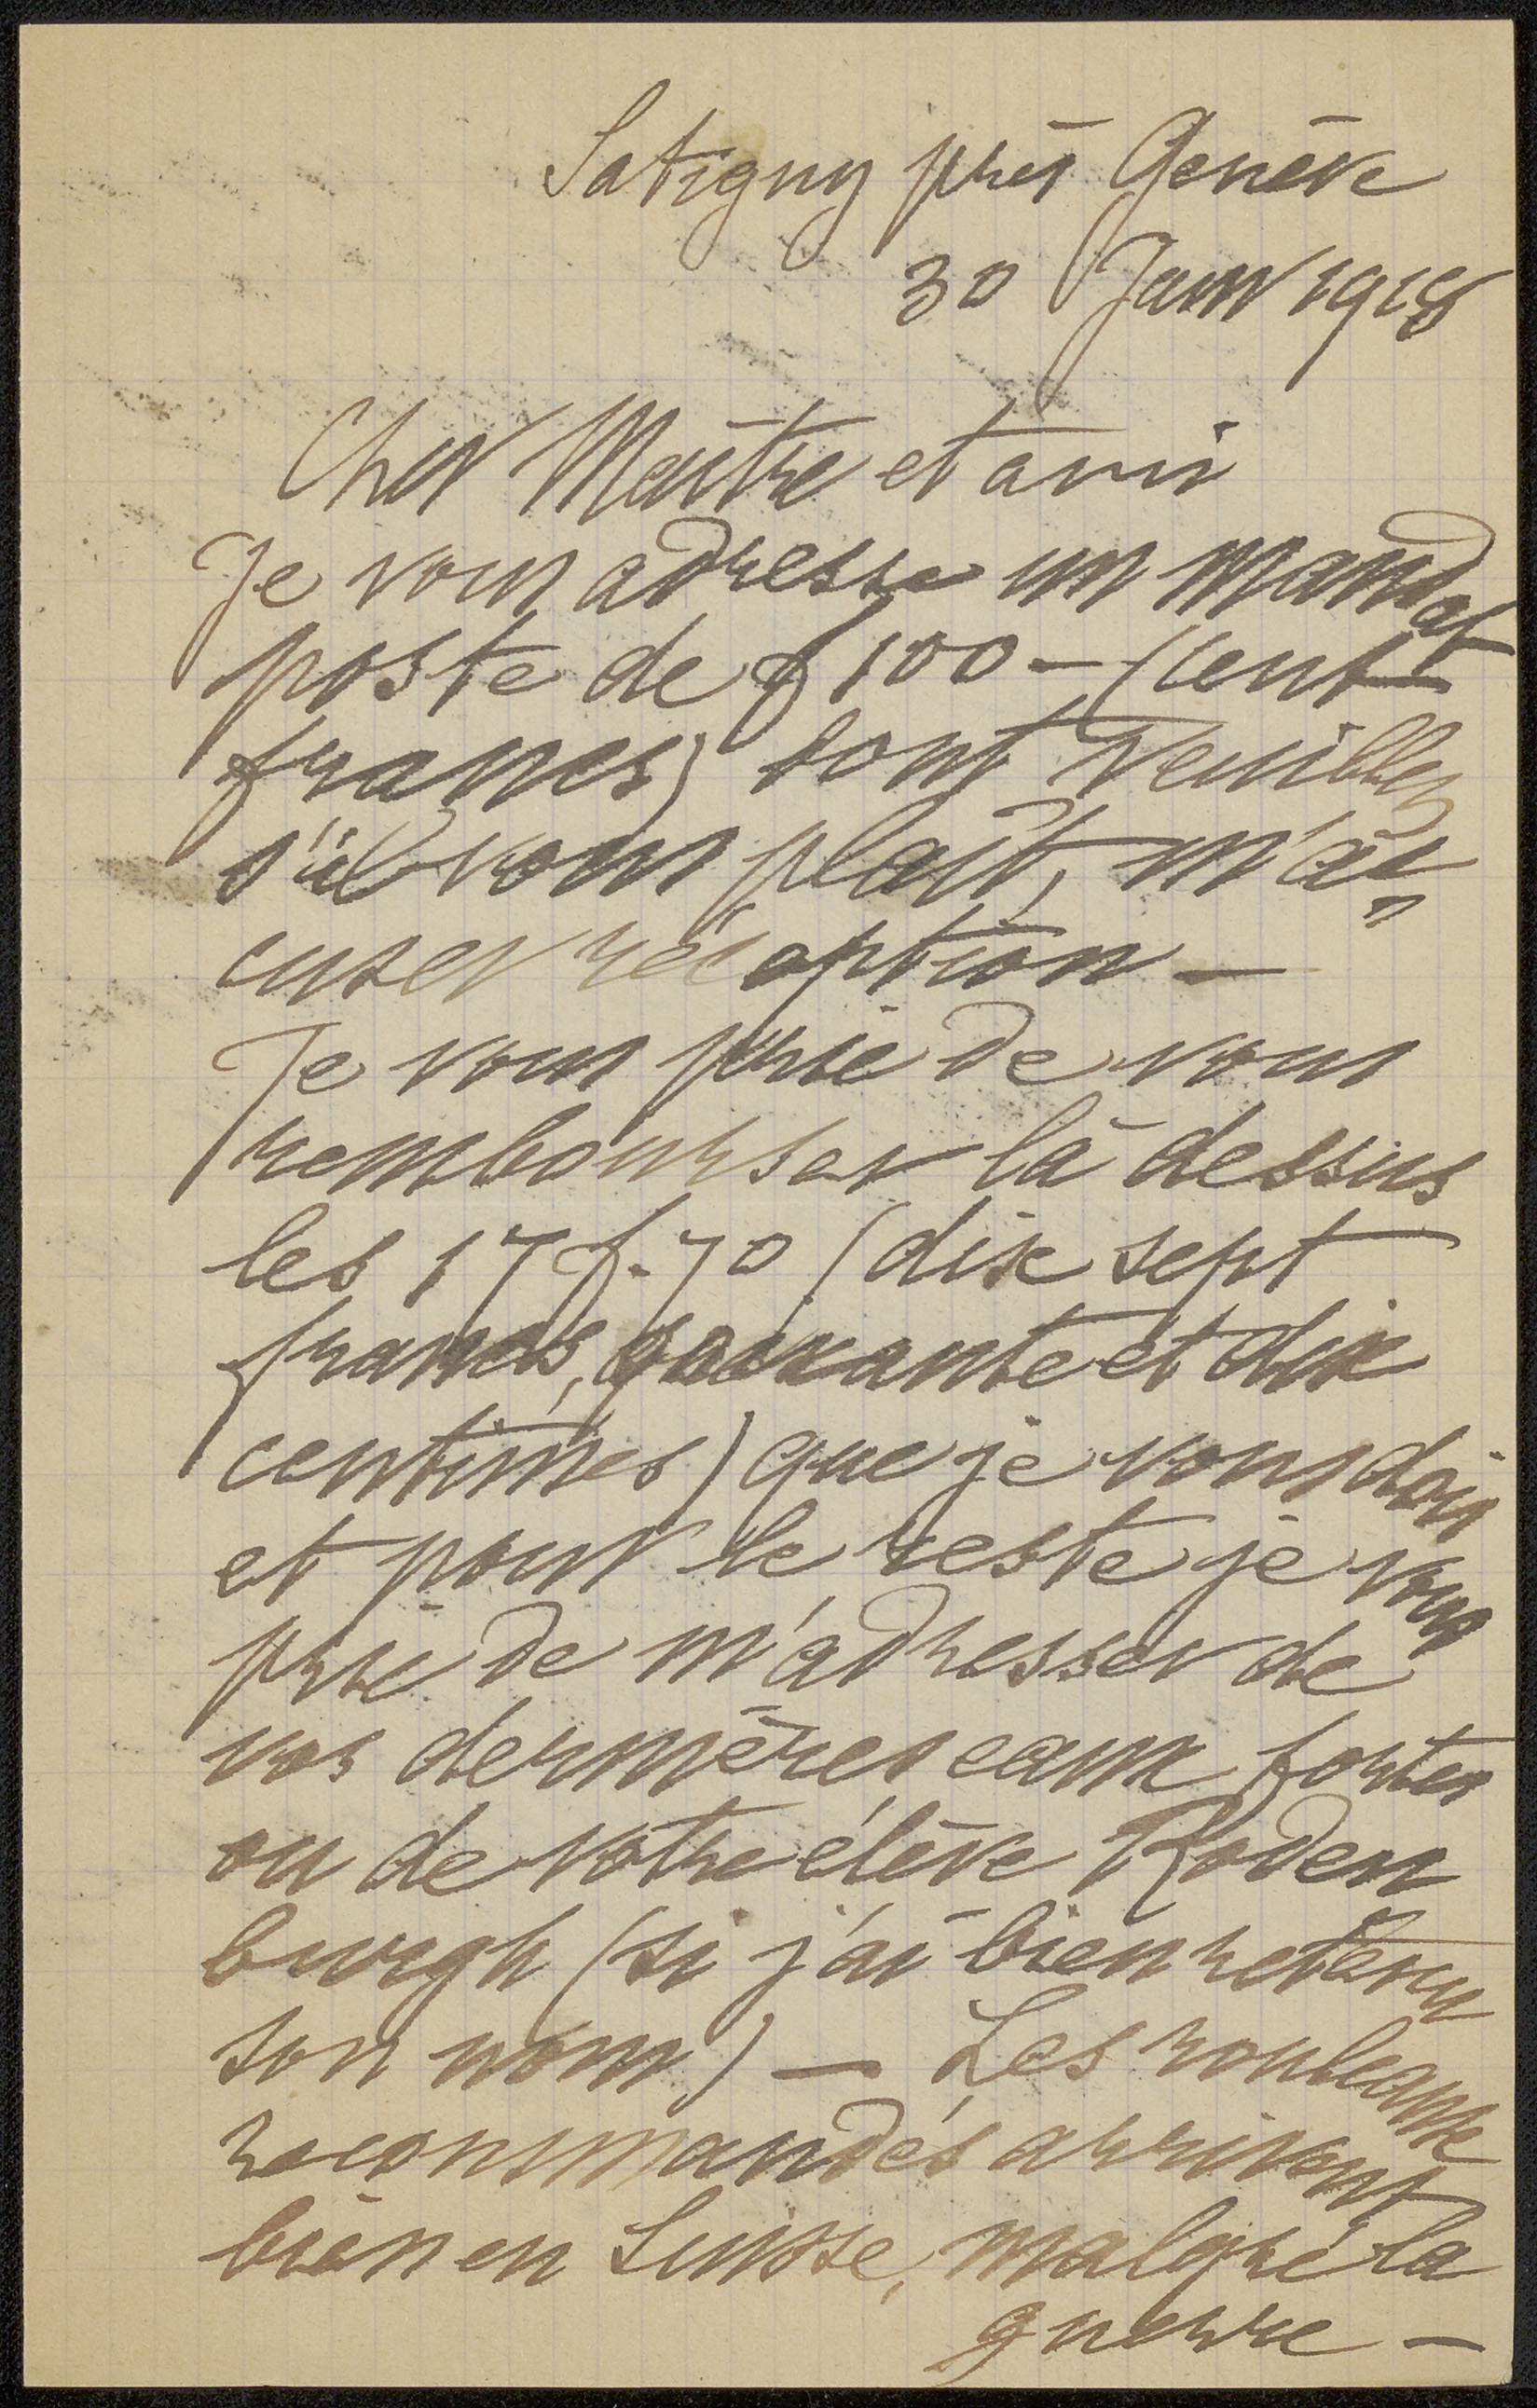 Satigny près Genève
30 Janv 1918
Cher Maître et ami
Je vous adresse un mandat
poste de f 100 – (cent
francs) dont veuillez
s'il vous plaît, m'ac,
cuser réception —
Je vous prie de vous
rembourser là dessus
les 17 f. 70 (dix sept
francs, soixante et dix
centimes) que je vous dois
et pour le reste je vous
prie de m'adresser de
vos dernières eaux fortes
ou de votre élève Roden
burgh (si j'ai bien retenu
son nom) — Les rouleaux
recommandés arrivent
bien en Suisse, malgré la
guerre —